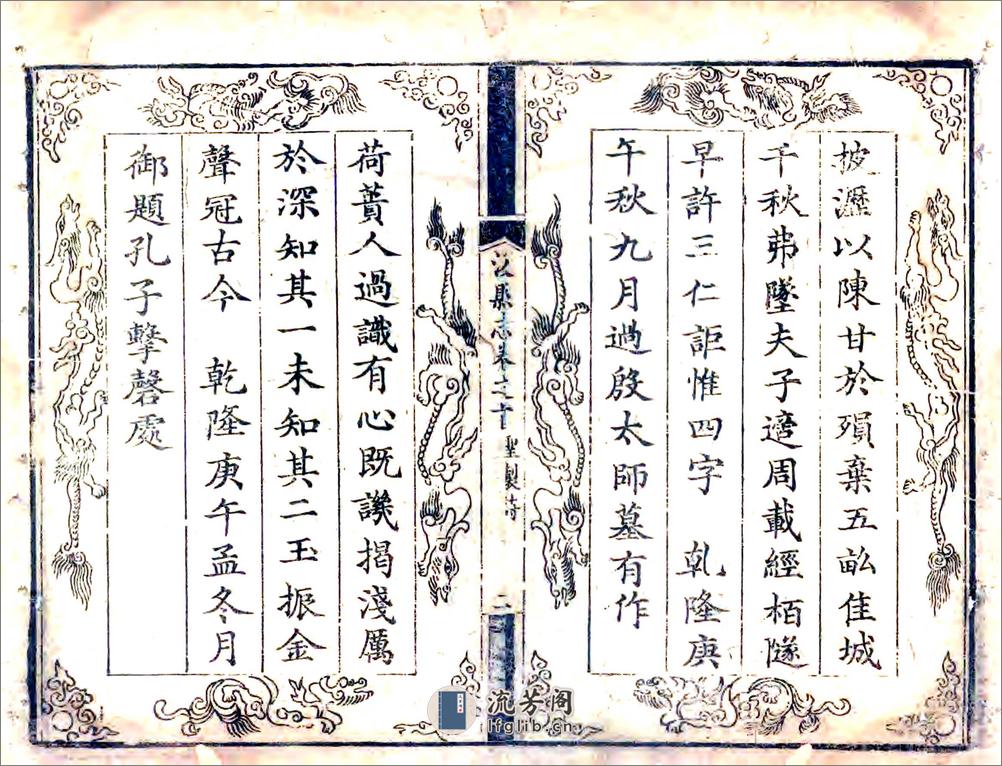 披瀝以陳甘於殞棄五畝佳城
千秋弗墜夫子適周載經栢隧
早許三仁詎惟四字　乹隆庚
午秋九月過殷太師墓有作
縣志卷之十 聖製詩 二
荷蕢人過識有心既譏揭淺厲
於深知其一未知其二玉振金
聲冠古今　乾隆庚午孟冬月
御題孔子擊磬處
流芳阁
lfglib.cn